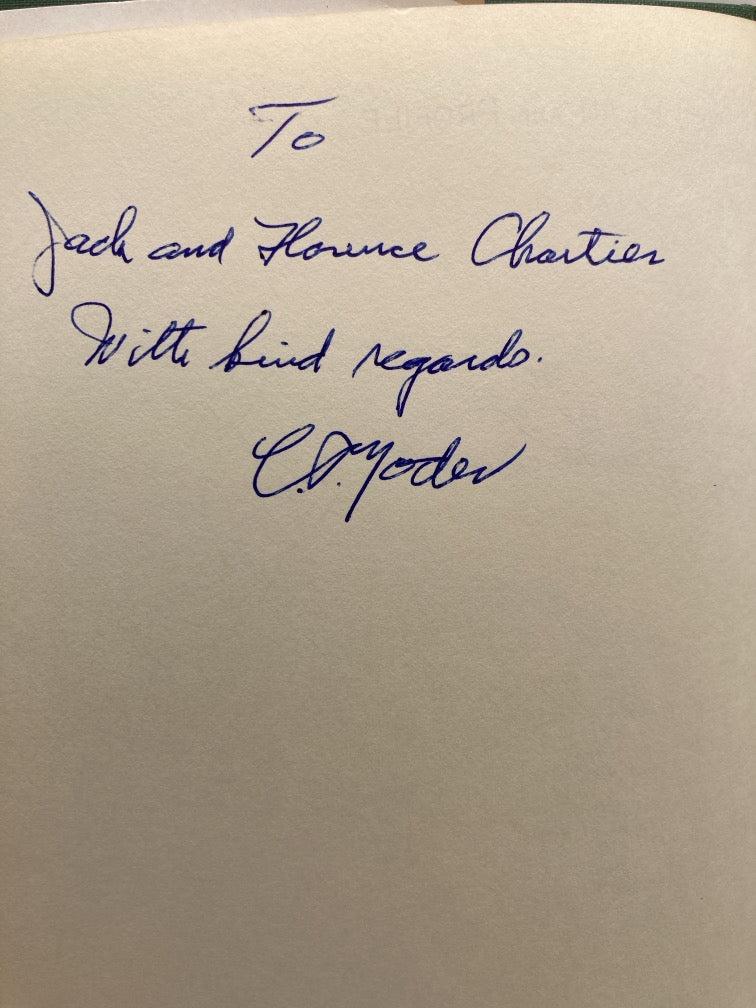 To
Jack and Florence Chartier
With kind regards.
C.D. Yoder